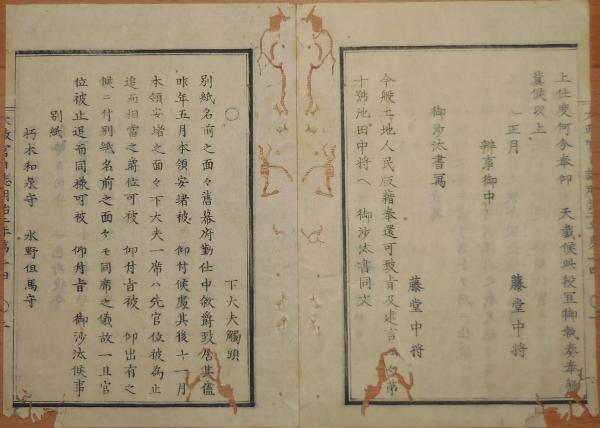 上仕度何分奉仰 天裁候此段宜御執奏奉
冀候以上
正月 藤堂中将
辨事御中
御沙汰書写 藤堂中将
今般土地人民版籍奉還可致旨及建言
十號池田中将ヘ 御沙汰書同文
下大夫觸頭
○
別紙名前之面々舊幕府勤仕中敘爵致居其儘
昨年五月本領安堵被 仰付候處其後十一月
本領安堵之面々下大夫一席ハ先官位被為止
追而相當之爵位可被 仰付旨被 仰出有之
候ニ付別紙名前之面々モ同席之儀故一旦官
位被止追而同様可被 仰付旨 御沙汰候事
別紙
朽木和泉守 水野但馬守
太政官日誌明治二年第十四